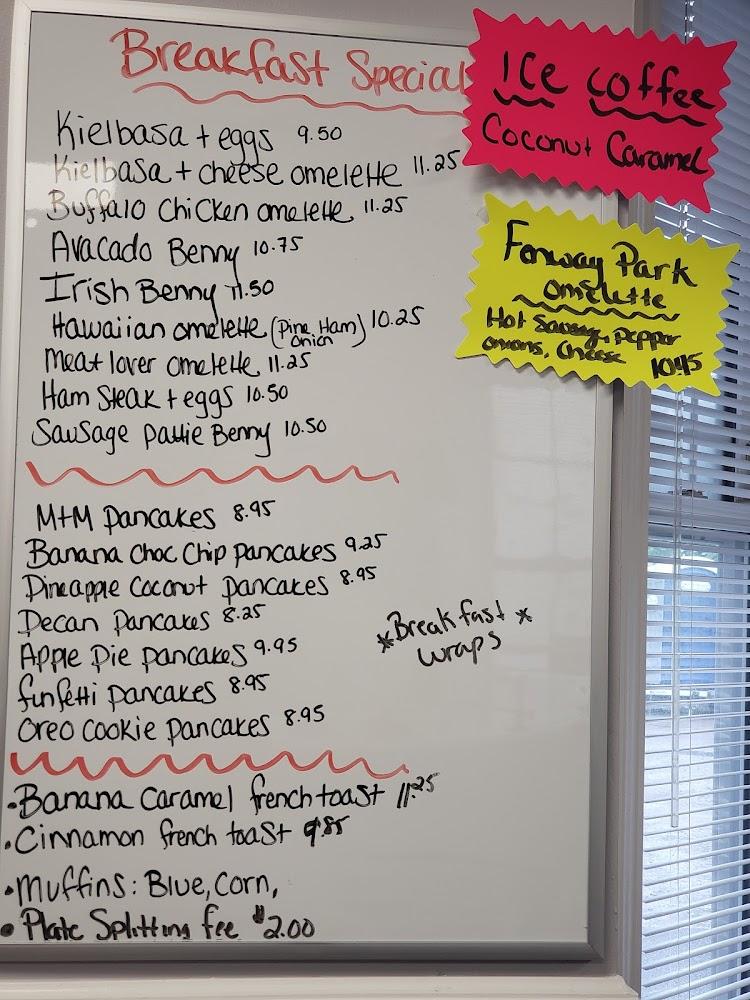 Breakfast Special
Kielbasa + eggs 9.50
Kielbasa + cheese omelette 11.25
Buffalo Chicken omelette 11.25
Avacado Benny 10.75
Irish Benny 11.50
Hawaiian omelette (Pine, Ham) 10.25
onion
Meat lover omelette 11.25
Ham Steak + eggs 10.50
Sausage pattie Benny 10.50
M+M pancakes 8.95
Banana Choc Chip pancakes 9.25
Pineapple Coconut pancakes 8.95
Pecan pancakes 8.25
Apple Pie pancakes 9.95
funfetti pancakes 8.95
Oreo cookie pancakes 8.95
*Breakfast *
wraps
•Banana Caramel french toast 11.25
•Cinnamon french toast 9.85
•Muffins: Blue, Corn,
• Plate Splitting fee $2.00
Ice coffee
Coconut Caramel
Fenway Park
omelette
Hot Sausage, Pepper
onions, Cheese 10.45